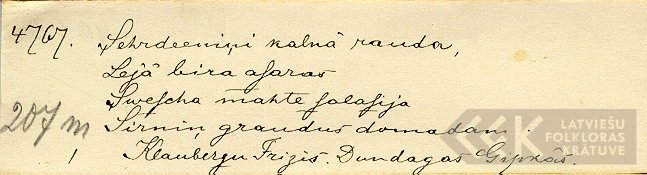 4767.
Sehrdeeniņi kalnâ rauda,
Lejâ bira asaras
Swescha mahte salasija
Sirniņ graudus domadam.
207 m
Klaubergu Frizis. Dundagas Gipkâs.
LATVIEŠU
FOLKLORAS
KRĀTUVE